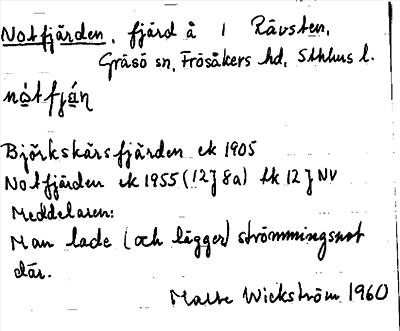 Notfjärden, fjärd å 1 Rävsten,
Gräsö sn, Frösåkers hd, Sthlms l.
nòtfján
Björkskärsfjärden ek 1905
Notfjärden ek 1955 (12J 8a) tk 12J NV
Meddelaren:
Man lade (och lägger) strömmingsnot
där.
Marre Wickström 1960